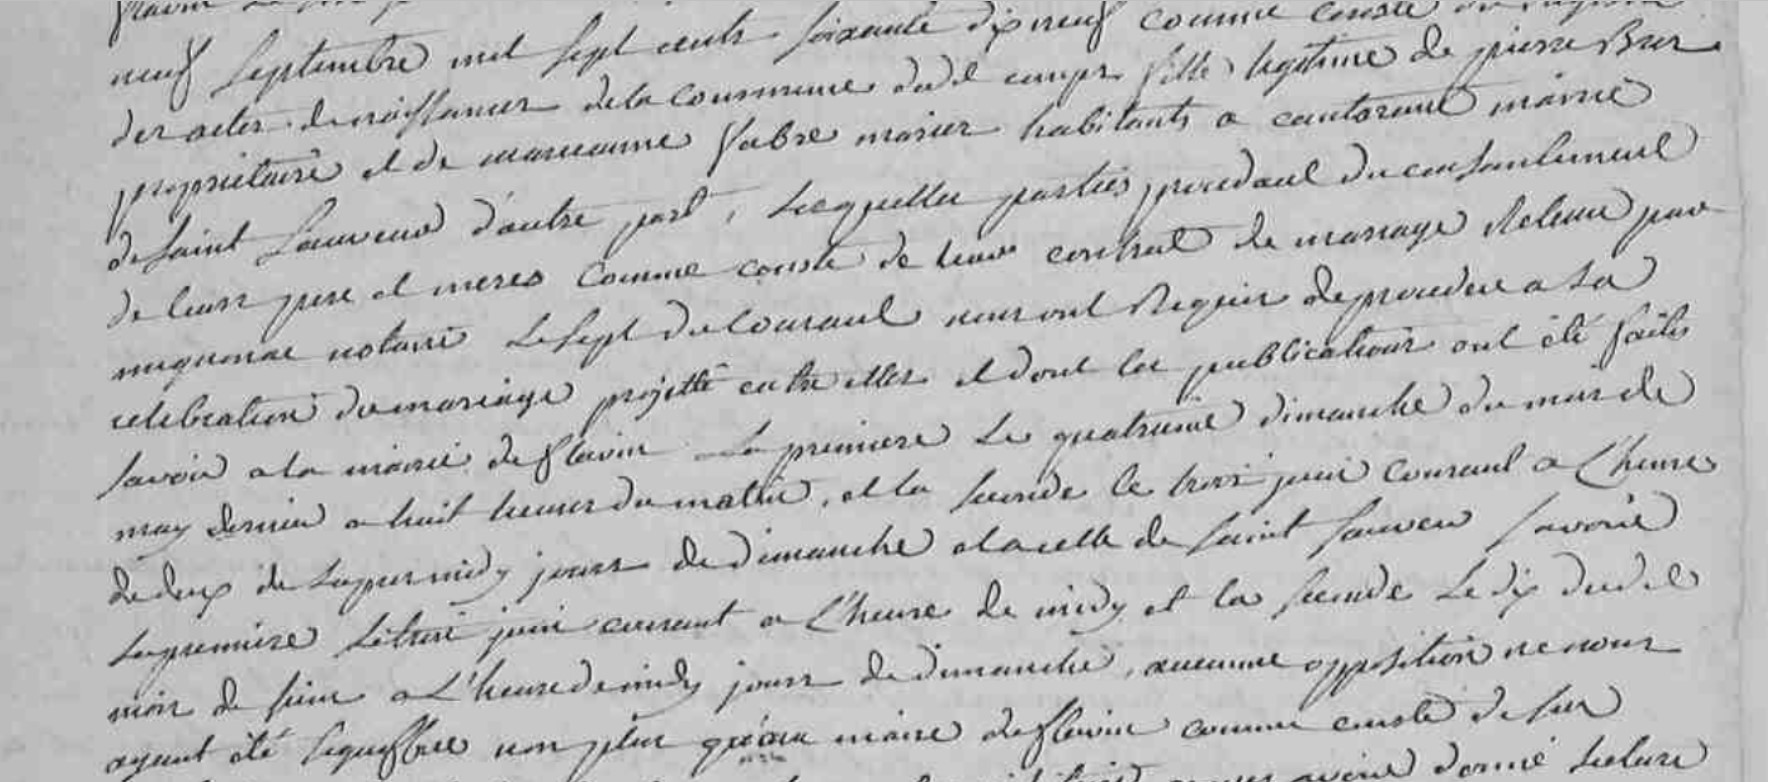 neuf Septembre mil sept cents soixante dix neuf comme conste du
des actes de naissances de la Commune dud. camps fille legitime de pierre Bres
propriétaire et de marianne fabre mariés habitants a cantarane mairie
de saint Sauveur d'autre part, Lesquelles parties procedant du consantement
de leurs pere et meres comme conste de leur contrat de mariage Retenu par
notaire Le sept du Courant nous ont Requis de proceder a La
celebration du mariage projetté entre elles et dont les publications ont été faites
savoir a la mairie de flavin La premiere Le quatrieme dimanche du mois de
may dernier a huit heures du matin, et la seconde le trois juin Courant a L'heure
de deux de Lapres midy jours de dimanche et a celle de saint Sauveur savoir
La premiere Le trois juin courant a L'heure de midy et la seconde Le dix dudit
mois de juin a L'heure de midy jours de dimanche, aucunne opposition ne nous
ayant été non plus qu'au maire de flavin comme conste de son
avoir donné Lecture